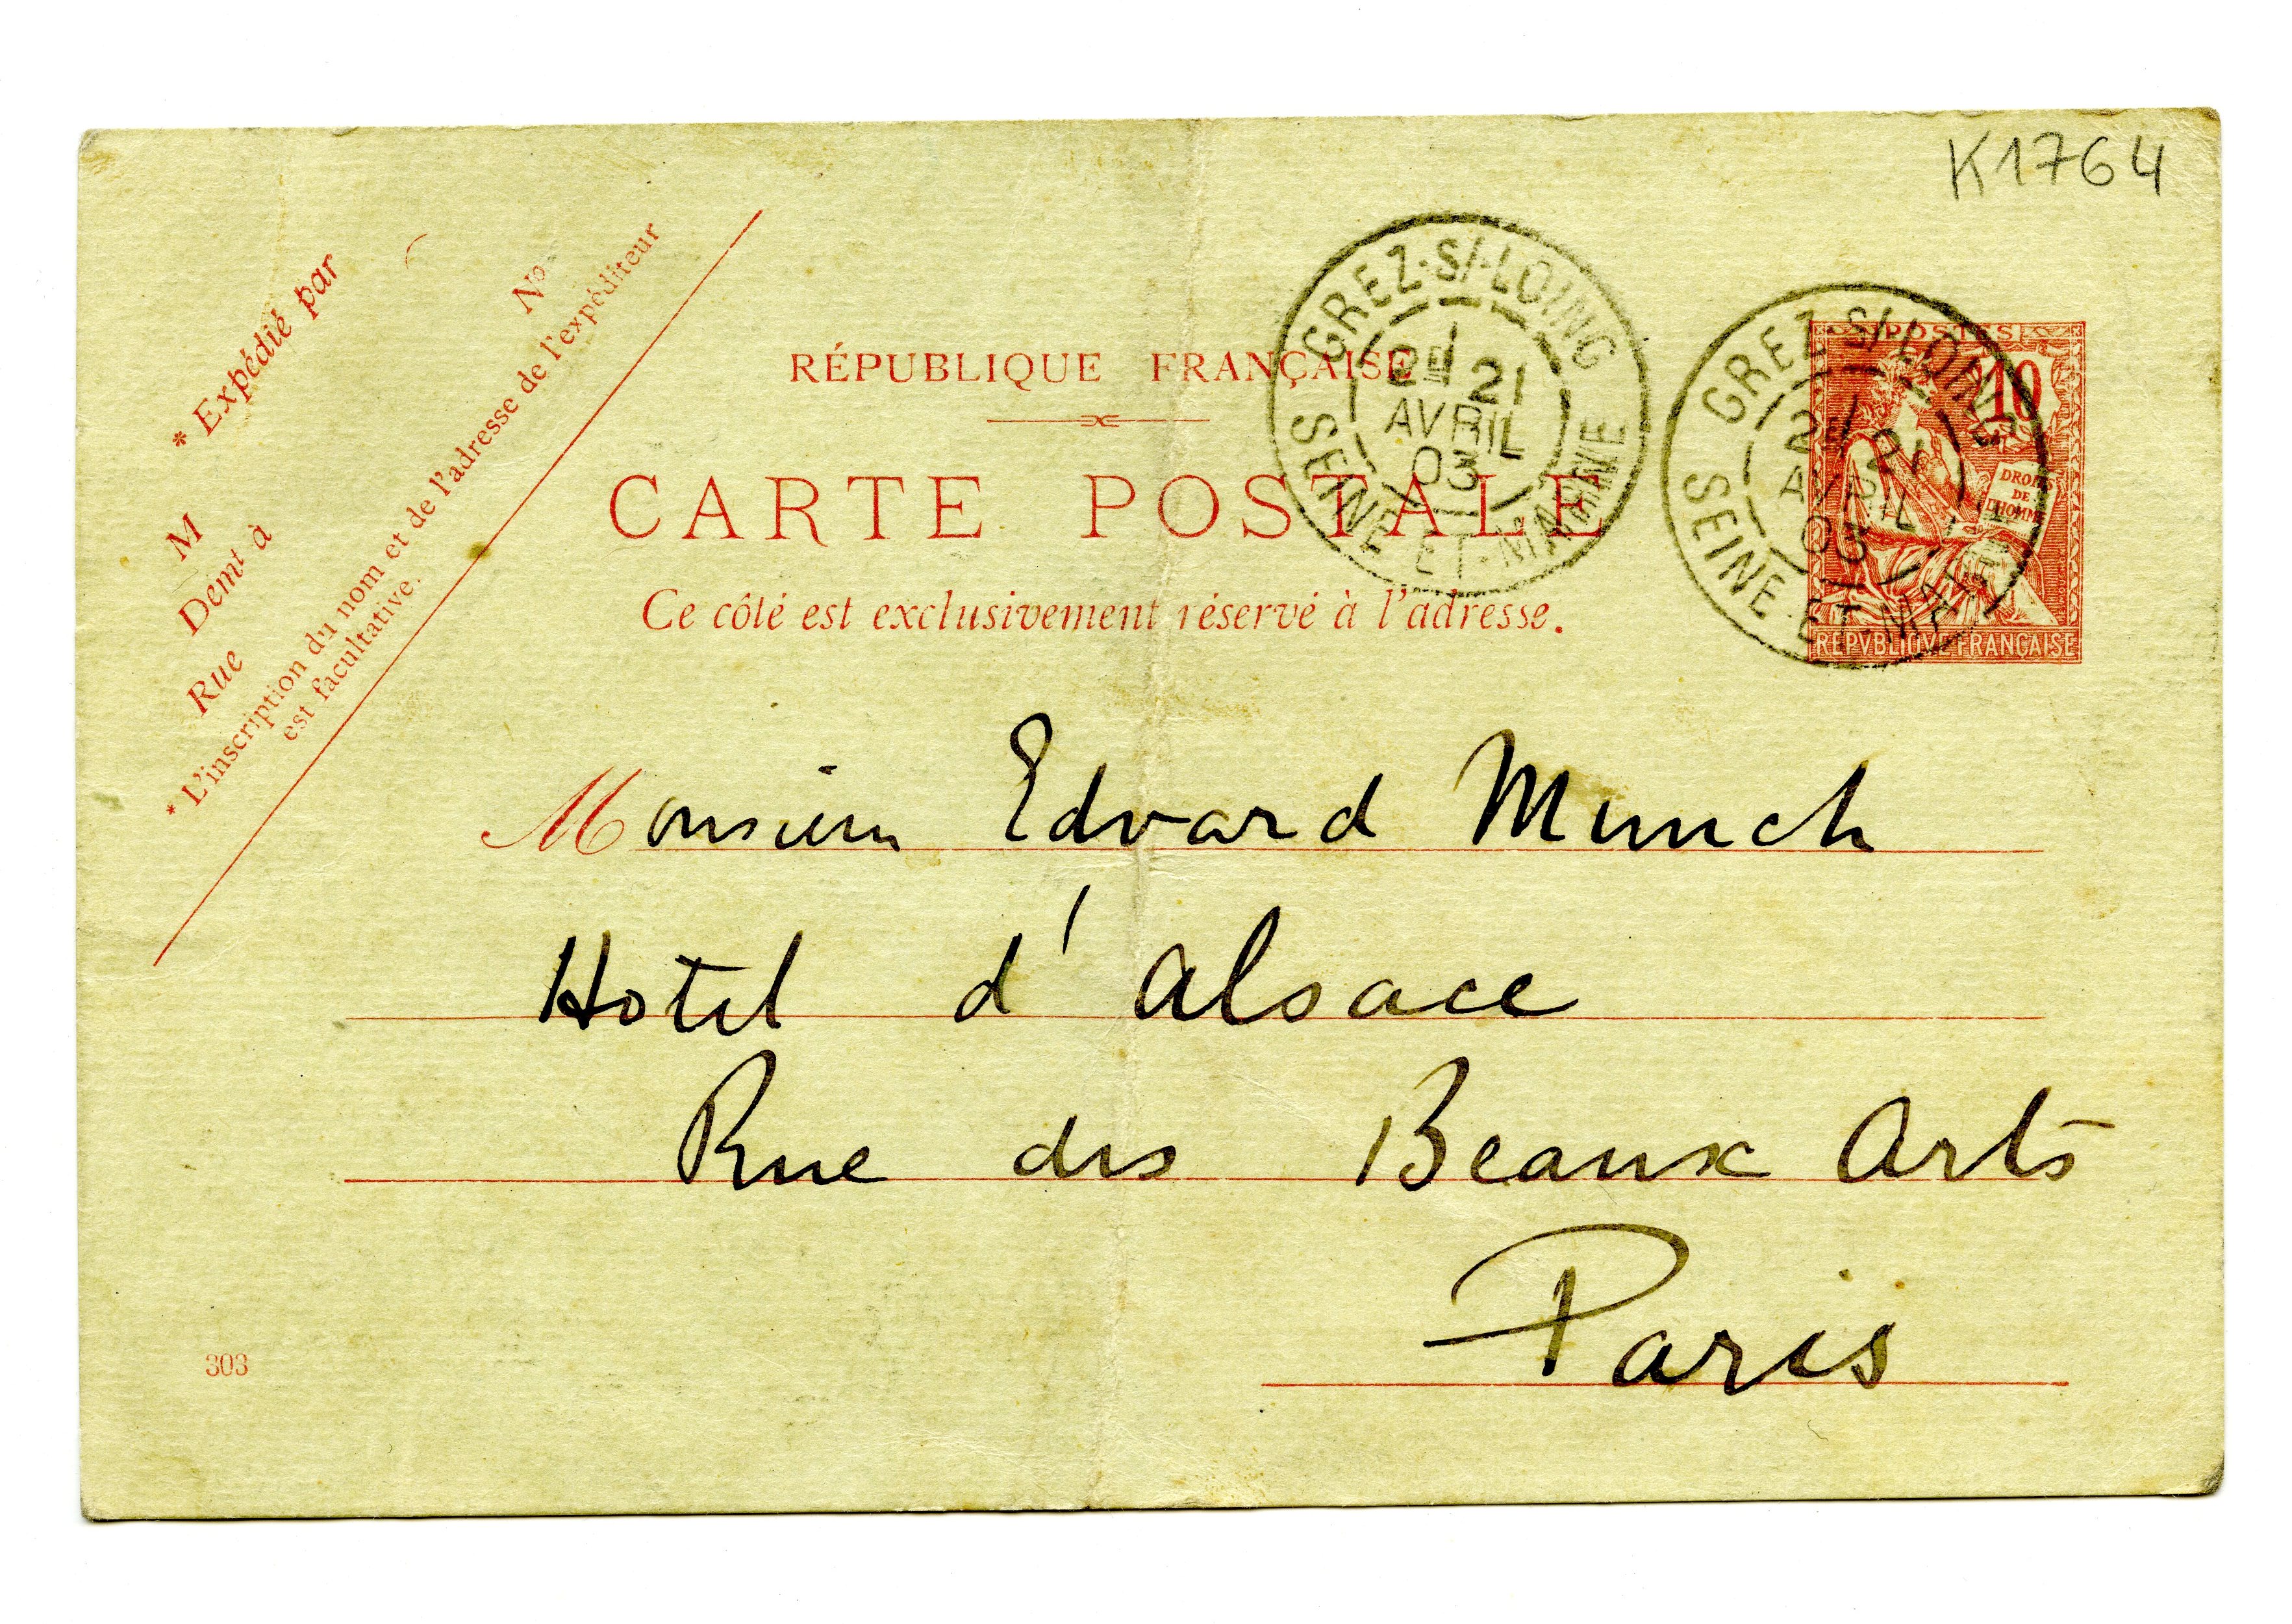 K1764
* Expédié par
M
Demt à
Rue
No
* L'inscription du nom et de l'adresse de l'expéditeur
est facultative.
RÉPUBLIQUE FRANÇAISE
CARTE POSTALE
Ce côté est exclusivement réservé à l'adresse.
GREZ-S/-LOING
2E 21
AVRIL
03
SEINE-ET-MARNE
GREZ-S/-LOING
2E 21
AVRIL
03
SEINE-ET-MARNE
POSTES
10
DROITS
DE
L'HOMME
REPVBLIQVE FRANÇAISE
Monsieur Edvard Munch
Hotel d'Alsace
Rue des Beaux Arts
Paris
303